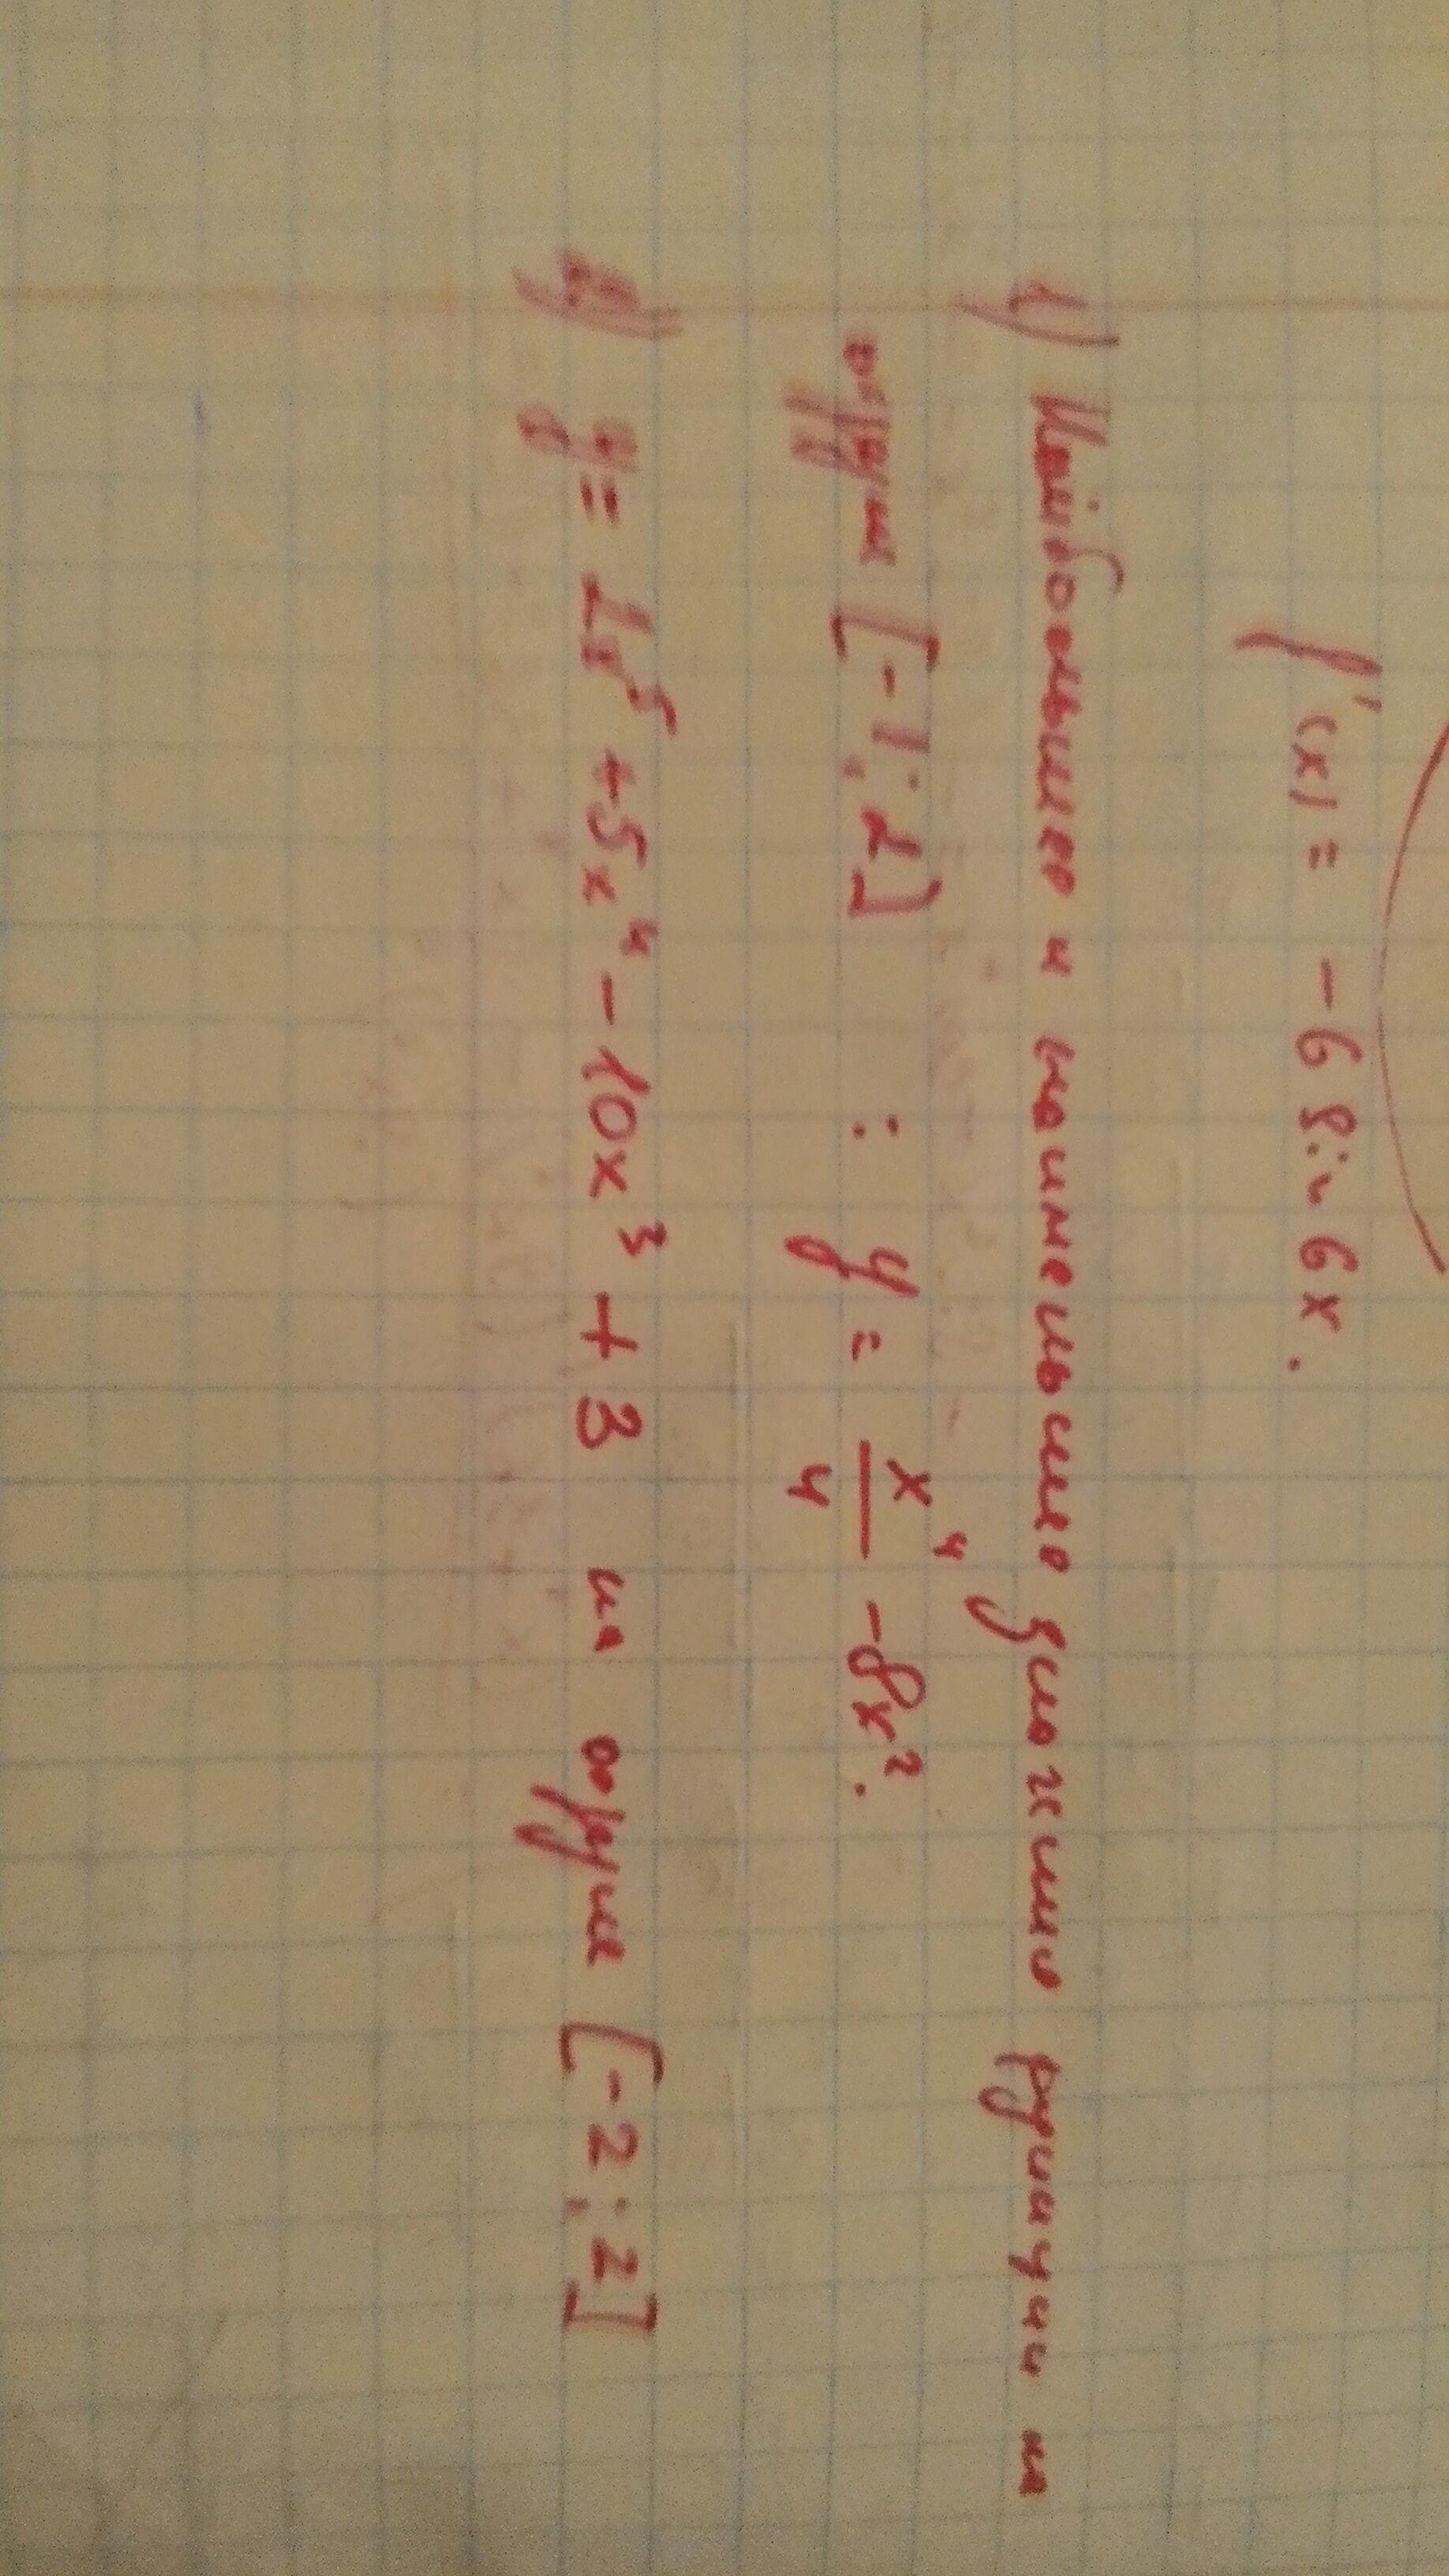 f'(x) = -6 sin 6x.
1) Наибольшее и наименьшее значение функции на
отрезке [-1; 2] : y = x⁴/4 - 8x².
2) y = 2x⁵ + 5x⁴ - 10x³ + 3 на отрезке [-2; 2]